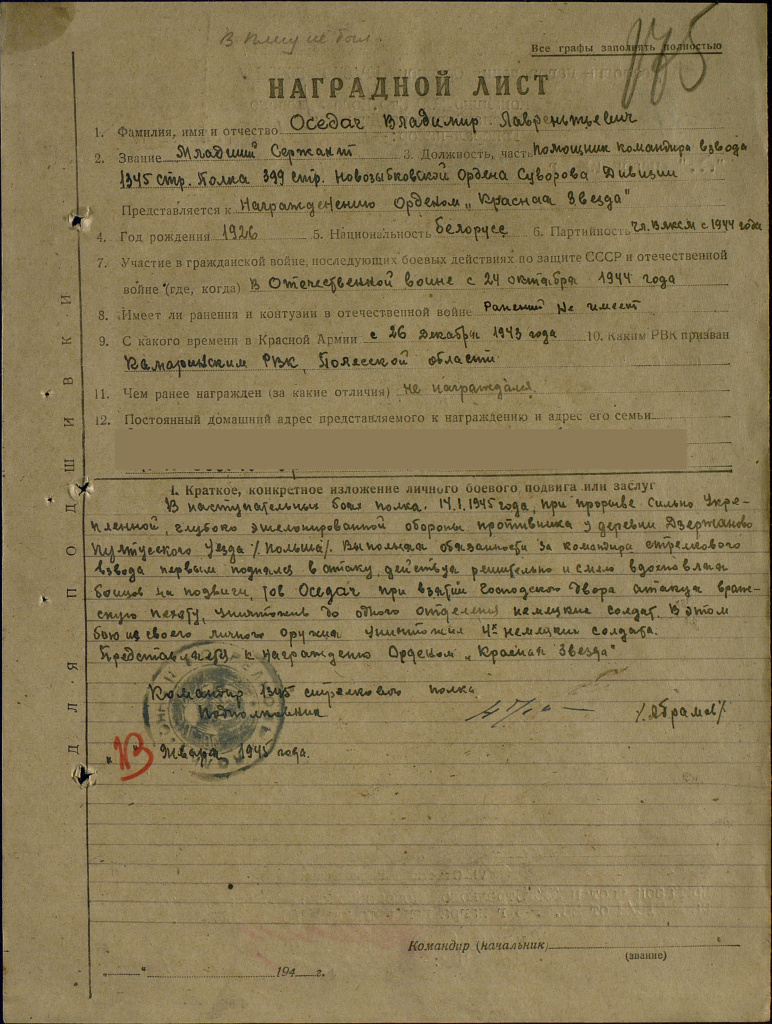 В плену не был.
175
Все графы заполнять полностью
НАГРАДНОЙ ЛИСТ
1. Фамилия, имя и отчество Оседач Владимир Лаврентьевич
2. Звание Младший Сержант 3. Должность, часть помощник командира взвода
1345 стр. Полка 399 стр. Новозыбковской Ордена Суворова Дивизии
Представляется к Награждению Орденом „Красная Звезда"
4. Год рождения 1926 5. Национальность белорусс 6. Партийность чл. ВЛКСМ с 1944 года
7. Участие в гражданской войне, последующих боевых действиях по защите СССР и отечественной
войне (где, когда) В Отечественной воине с 24 октября 1944 года
8. Имеет ли ранения и контузии в отечественной войне Ранений Не имеет
9. С какого времени в Красной Армии с 26 Декабря 1943 года 10. Каким РВК призван
Камаринским РВК, Полесской области
11. Чем ранее награжден (за какие отличия) не награждался
12. Постоянный домашний адрес представляемого к награждению и адрес его семьи
1. Краткое, конкретное изложение личного боевого подвига или заслуг
В наступательных боях полка. 14.1.1945 года, при прорыве сильно Укре-
пленной, глубоко эшелонированной обороны противника у деревни Дзержаново
Пултусского Уезда /Польша/. Выполняя обязанности за командира стрелкового
взвода первым поднялся в атаку, действуя решительно и смело
бойцов на подвиги, тов Оседач при взятии Господского Двора атакуя враже-
скую пехоту, уничтожив до одного отделения немецких солдат. В этом
бою из своего личного оружия уничтожил 4х немецких солдата.
Представляется к награждению Орденом „Красная Звезда"
Командир 1345 стрелкового полка
Подполковник /Абрамов/
„13" Января 1945 года.
ДЛЯ ПОДШИВКИ
Командир (начальник)
(звание)
„ " 194 г.